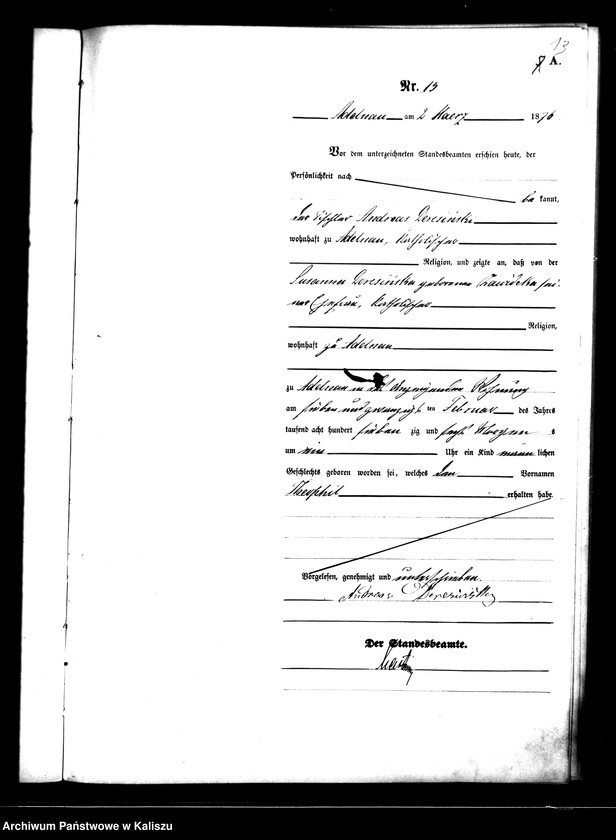 13
A.
Nr. 13
Adelnau am 2 Maerz 1876
Vor dem unterzeichneten Standesbeamten erschien heute, der
Persönlichkeit nach
be kannt,
der Tischler Andreas Deresiński
wohnhaft zu Adelnau, katholischer
Religion, und zeigte an, daß von der
Susanna Deresińska geborenen sei-
ner Ehefrau, katholischer
Religion,
wohnhaft zu Adelnau
zu Adelnau in Wohnung
am sieben und zwanzig ten Februar des Jahres
tausend acht hundert sieben zig und sechs s
um Uhr ein Kind männ lichen
Geschlechts geboren worden sei, welches den Vornamen
Theophil erhalten habe.
Vorgelesen, genehmigt und unterschrieben.
Andreas Deresiński
Der Standesbeamte.
Archiwum Państwowe w Kaliszu